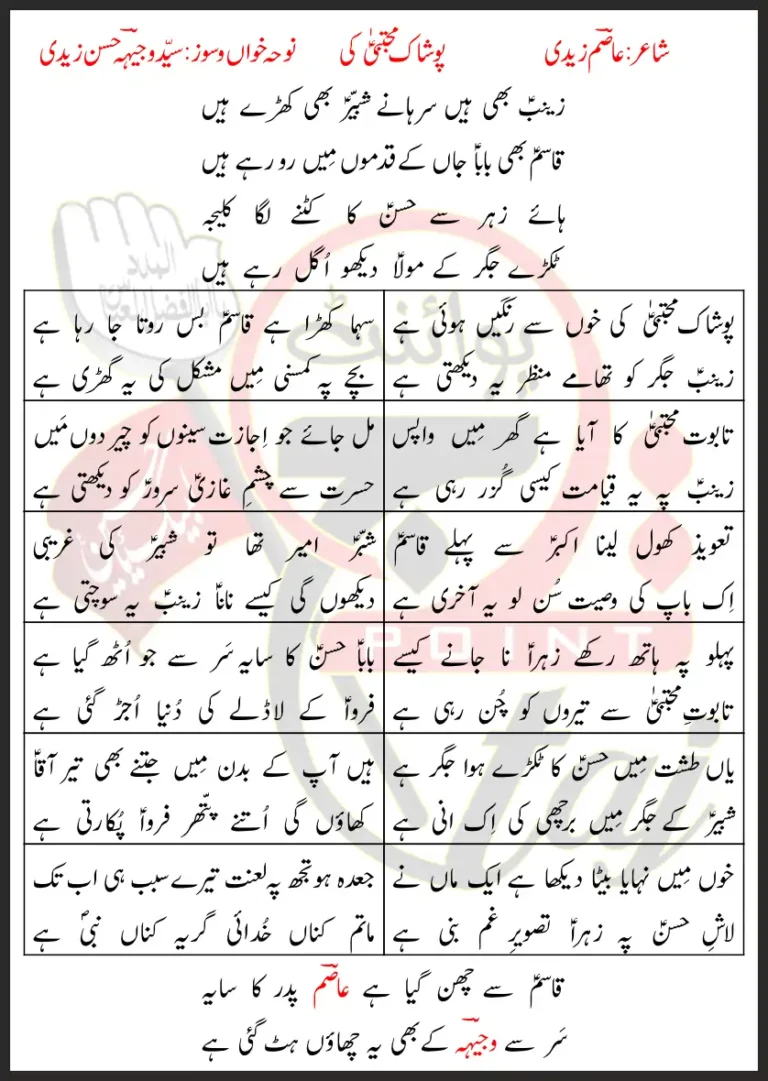 شاعر: عاصمؔ زیدی پوشاک مجتبیٰؑ کی نوحہ خواں و سوز: سیّد وجیہہؔ حسن زیدی
زینبؑ بھی ہیں سرہانے شبیّرؑ بھی کھڑے ہیں
قاسمؑ بھی باباؑ جاں کے قدموں مِیں رو رہے ہیں
ہائے زہر سے حسنؑ کا کٹنے لگا کلیجہ
ٹکڑے جگر کے مولاؑ دیکھو اُگل رہے ہیں
پوشاک مجتبیٰؑ کی خوں سے رنگیں ہوئی ہے
زینبؑ جگر کو تھامے منظر یہ دیکھتی ہے
سہا کھڑا ہے قاسمؑ بس روتا جا رہا ہے
بچے پہ کمسنی مِیں مشکل کی یہ گھڑی ہے
تابوت مجتبیٰؑ کا آیا ہے گھر مِیں واپس
زینبؑ پہ یہ قیامت کیسی گُزر رہی ہے
مل جائے جو اِجازت سینوں کو چیر دوں مَیں
حسرت سے چشمِ غازیؑ سرورؑ کو دیکھتی ہے
تعویذ کھول لینا اکبرؑ سے پہلے قاسمؑ
اِک باپ کی وصیت سُن لو یہ آخری ہے
شبّرؑ امیر تھا تو شبیرؑ کی غریبی
دیکھوں گی کیسے ناناؑ زینبؑ یہ سوچتی ہے
پہلو پہ ہاتھ رکھے زہراؑ نا جانے کیسے
تابوتِ مجتبیٰؑ سے تیروں کو چُن رہی ہے
باباؑ حسنؑ کا سایہ سَر سے جو اُٹھ گیا ہے
فرواؑ کے لاڈلے کی دُنیا اُجڑ گئی ہے
یاں طشت مِیں حسنؑ کا ٹکڑے ہوا جگر ہے
شبیرؑ کے جگر مِیں برچھی کی اِک انی ہے
ہیں آپ کے بدن مِیں جتنے بھی تیر آقاؑ
کھاؤں گی اُتنے پتّھر فرواؑ پُکارتی ہے
خوں مِیں نہایا بیٹا دیکھا ہے ایک ماں نے
لاشِ حسنؑ پہ زہراؑ تصویرِ غم بنی ہے
جعدہ ہو تجھ پہ لعنت تیرے سبب ہی اب تک
ماتم کناں خُدائی گریہ کناں نبیؐ ہے
قاسمؑ سے چھن گیا ہے عاصمؔ پدر کا سایہ
سَر سے وجیہہؔ کے بھی یہ چھاؤں ہٹ گئی ہے
پوائنٹ
POINT
taj